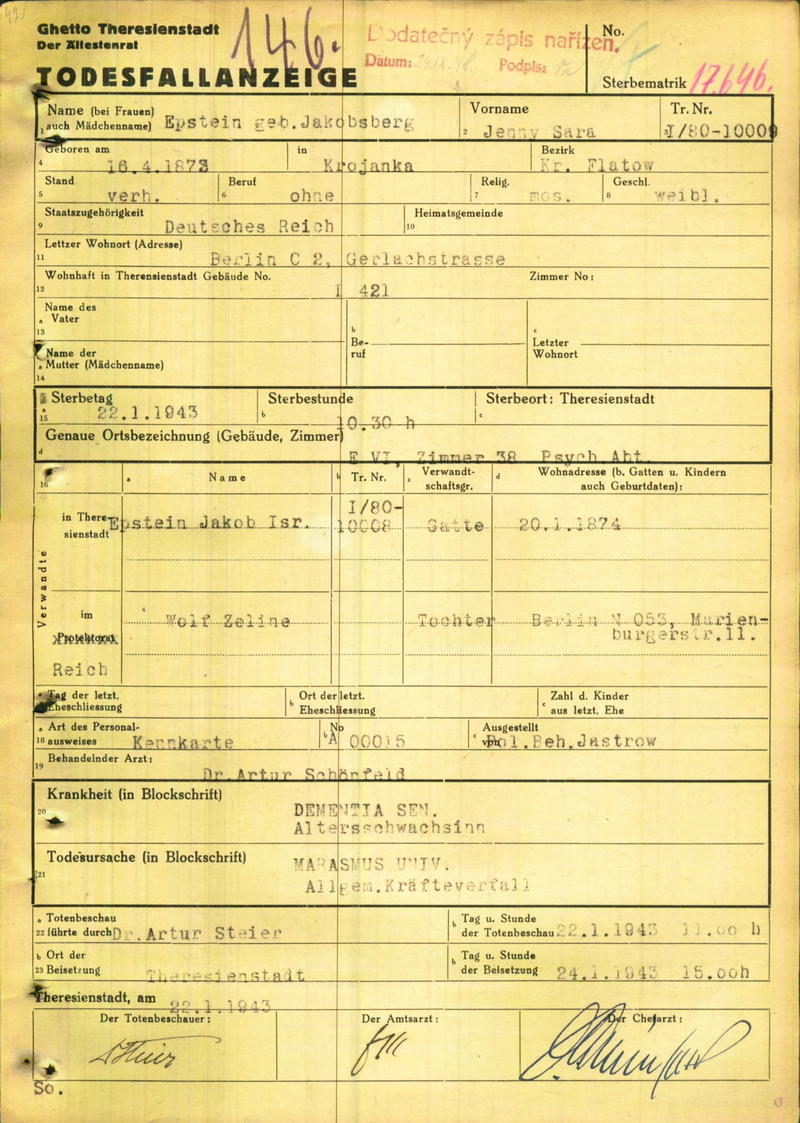 Ghetto Theresienstadt
Der Ältestenrat
TODESFALLANZEIGE
146.
Dodatečný zápis nařízen.
Datum:
Podpis:
No.
Sterbematrik 17646.
Name (bei Frauen)
1 auch Mädchenname) Epstein geb.Jakobsberg
Vorname
2 Jenny Sara
Tr. Nr.
I/80-10009
Geboren am
4 16.4.1873
in
Krojanka
Bezirk
Kr. Flatow
Stand
5 verh.
Beruf
6 ohne
Relig.
7 mos.
Geschl.
8 weibl.
Staatszugehörigkeit
9 Deutsches Reich
Heimatsgemeinde
10
Lettzer Wohnort (Adresse)
11 Berlin C 2, Gerlachstrasse
Wohnhaft in Theresienstadt Gebäude No.
12 I 421
Zimmer No:
Name des
a Vater
13
b
Be-
ruf
c
Letzter
Wohnort
Name der
a Mutter (Mädchenname)
14
Sterbetag
a 15 22.1.1943
Sterbestunde
b 10.30 h
Sterbeort: Theresienstadt
c
Genaue Ortsbezeichnung (Gebäude, Zimmer)
d E VI, Zimmer 38 Psych Abt.
16
a Name
b Tr. Nr.
c Verwandt-
schaftsgr.
d Wohnadresse (b. Gatten u. Kindern
auch Geburtdaten):
Verwandte
in There-
sienstadt
Epstein Jakob Isr.
I/80-
10008
Gatte
20.1.1874
im
Protektorat
Reich
Wolf Zeline
Tochter
Berlin N 053, Marien-
burgerstr.11.
a Tag der letzt.
Eheschliessung
b Ort der letzt.
Eheschliessung
c Zahl d. Kinder
aus letzt. Ehe
a Art des Personal-
18 ausweises Kennkarte
b No
A 00015
c Ausgestellt
von Pol.Beh.Jastrow
Behandelnder Arzt:
19 Dr.Artur Schönfeld
Krankheit (in Blockschrift)
20
DEMENTIA SEN.
Altersschwachsinn
Todesursache (in Blockschrift)
21
MARASMUS UNIV.
Allgem.Kräfteverfall
a Totenbeschau
22 führte durch Dr.Artur Steier
b Tag u. Stunde
der Totenbeschau 22.1.1943 11.oo h
b Ort der
23 Beisetzung Theresienstadt
b Tag u. Stunde
der Beisetzung 24.1.1943 15.ooh
Theresienstadt, am 22.1.1943
Der Totenbeschauer:
Der Amtsarzt:
Der Chefarzt:
So.